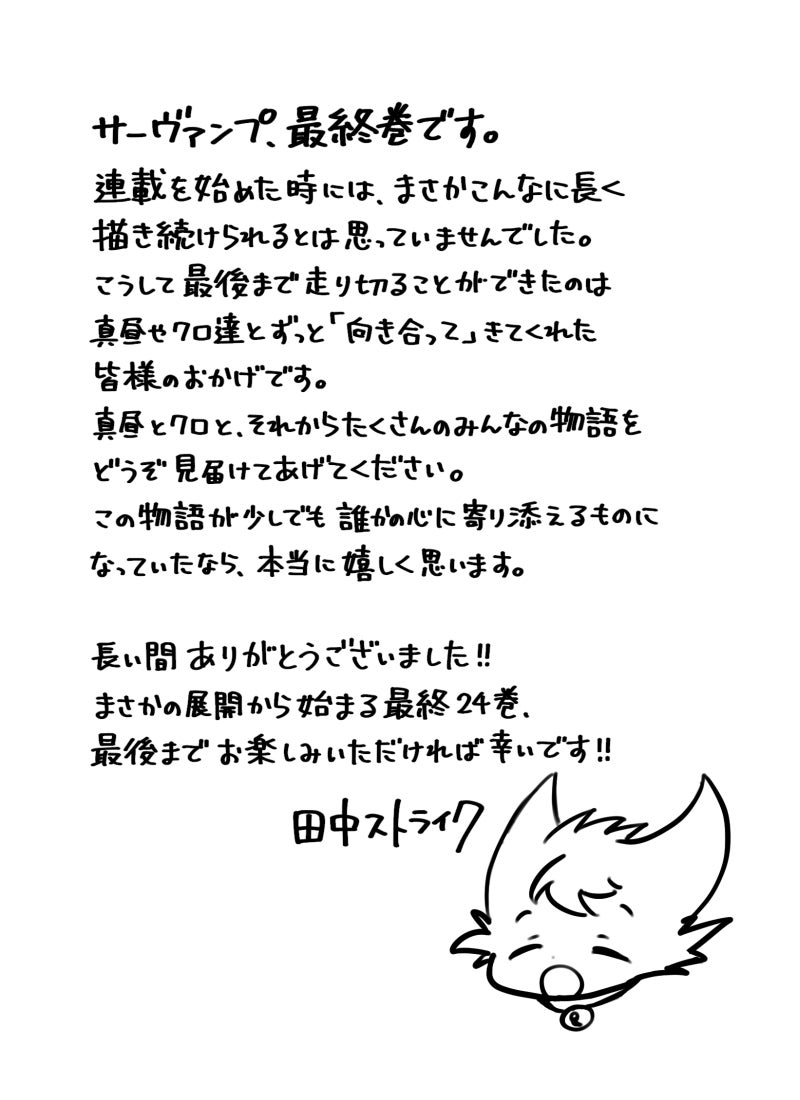 サーヴァンプ、最終巻です。
連載を始めた時には、まさかこんなに長く
描き続けられるとは思っていませんでした。
こうして最後まで走り切ることができたのは
真昼やクロ達とずっと「向き合って」きてくれた
皆様のおかげです。
真昼とクロと、それからたくさんのみんなの物語を
どうぞ見届けてあげてください。
この物語が少しでも誰かの心に寄り添えるものに
なっていたなら、本当に嬉しく思います。
長い間ありがとうございました!!
まさかの展開から始まる最終24巻、
最後までお楽しみいただければ幸いです!!
田中ストライク